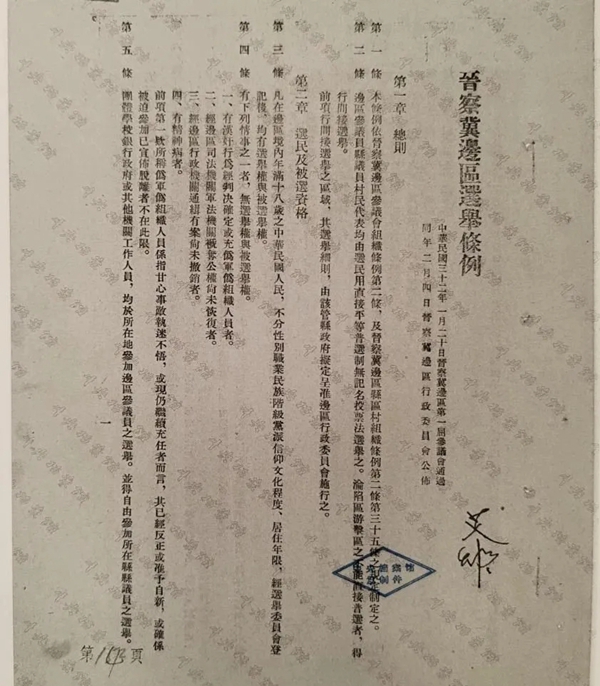 晉察冀邊區選舉條例
中華民國三十二年一月二十日晉察冀邊區第一屆參議會通過
同年二月四日晉察冀邊區行政委員會公佈
第一章　總則
第一條　本條例依晉察冀邊區參議會組織條例第二條，及晉察冀邊區縣區村組織條例第二條第三十五條之規定制定之。
第二條　邊區參議員縣議員村民代表均由選民用直接平等普選制無記名投票法選舉之。淪陷區游擊區之不能直接普選者，得
行間接選舉。
前項行間接選舉之區域，其選舉細則，由該管縣政府擬定呈准邊區行政委員會施行之。
第二章　選民及被選資格
第三條　凡在邊區境內年滿十八歲之中華民國人民，不分性別職業民族階級黨派信仰文化程度、居住年限，經選舉委員會登
記後，均有選舉權與被選舉權。
第四條　有下列情事之一者，無選舉權與被選舉權。
一、有漢奸行爲經判決確定或充僞軍僞組織人員者。
二、經邊區司法機關軍法機關褫奪公權尚未恢復者。
三、經邊區行政機關通緝有案尚未撤銷者。
四、有精神病者。
前項第一欵所稱僞軍僞組織人員係指甘心事敵執迷不悟，或現仍繼續充任者而言，其已經反正或准予自新，或確係
被迫參加已宣佈脫離者不在此限。
第五條　團體學校銀行政府或其他機關工作人員，均於所在地參加邊區參議員之選舉。並得自由參加所在縣縣議員之選舉。
一
第 頁